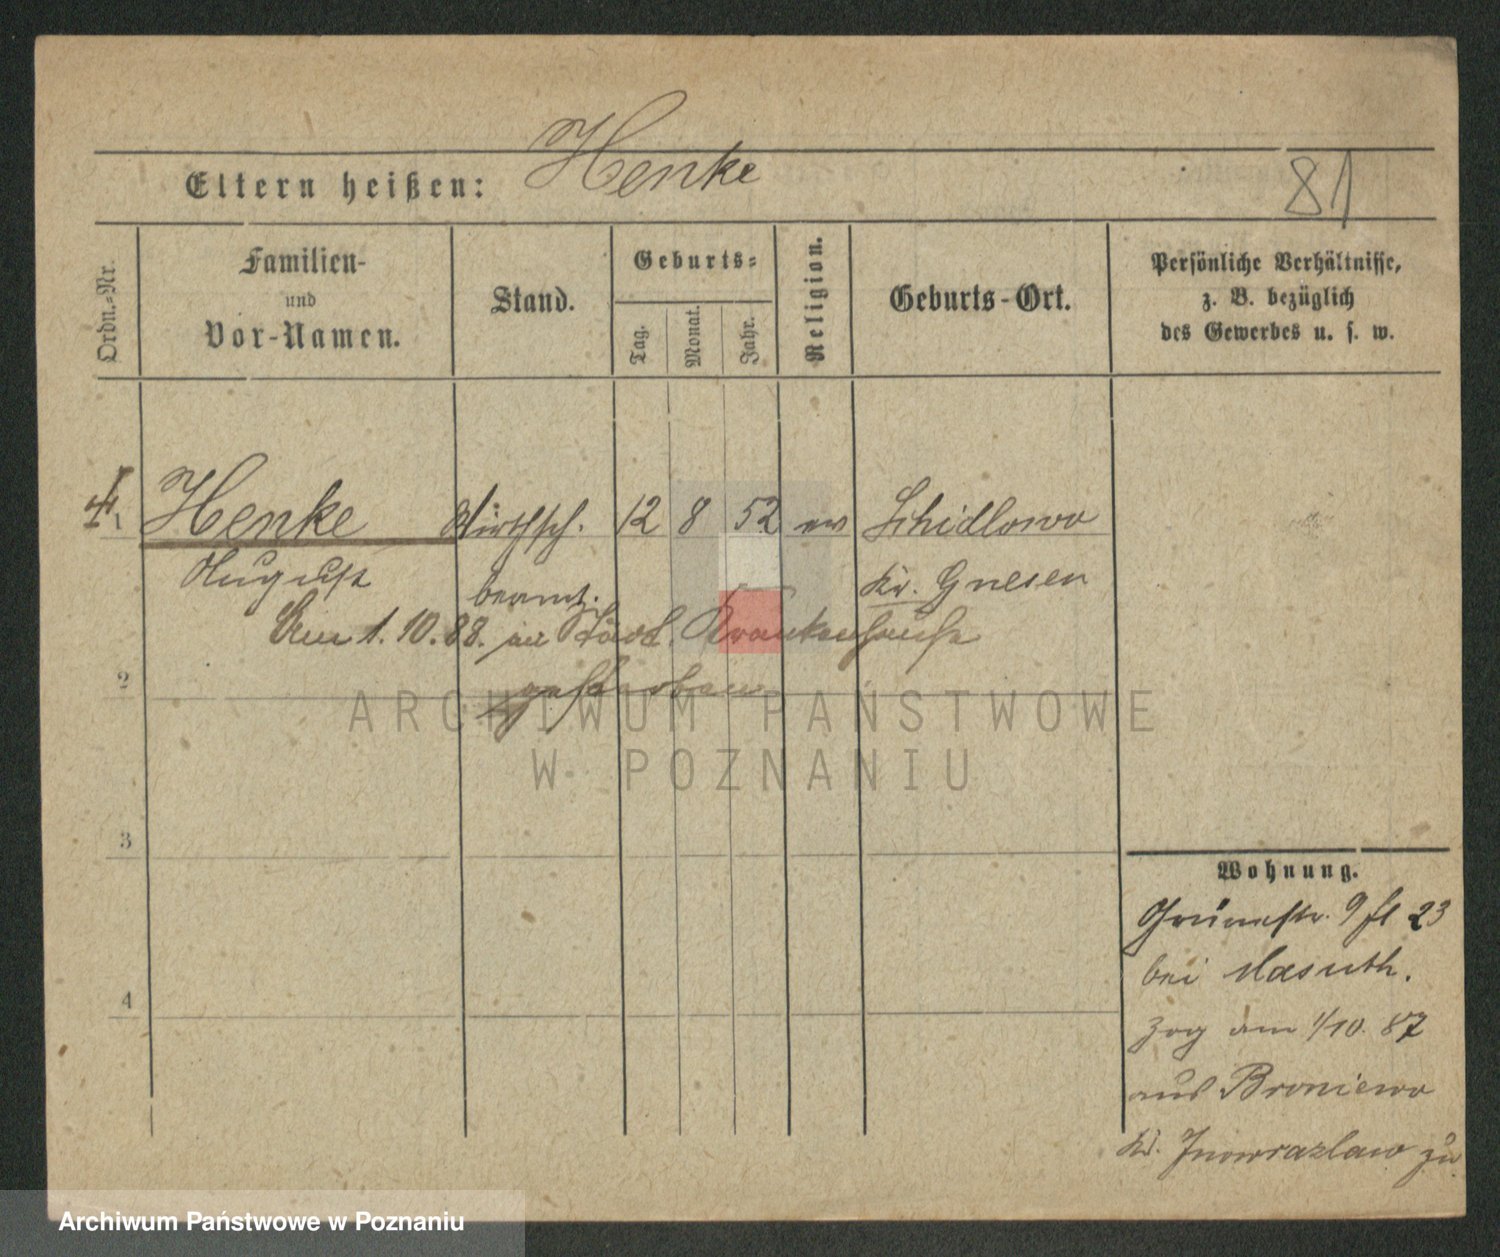 Henke
Eltern heißen:
81
Ordn.-Nr.
Familien-
und
Vor-Namen.
Stand.
Geburts-
Tag.
Monat.
Jahr.
Religion.
Geburts-Ort.
Persönliche Verhältnisse,
z. B. bezüglich
des Gewerbes u. s. w.
1 Henke Wirthsch. 12 8 52 ev Schidlowo
August beamt. Kr. Gnesen
Am 1.10.88. im Städt. Krankenhause
gestorben
2
3
4
Wohnung.
Grünestr. 9 fl 23
bei Masuth.
zog am 1/10. 87
aus Broniewo
Kr. Inowrazlaw zu
ARCHIWUM PAŃSTWOWE
W POZNANIU
Archiwum Państwowe w Poznaniu